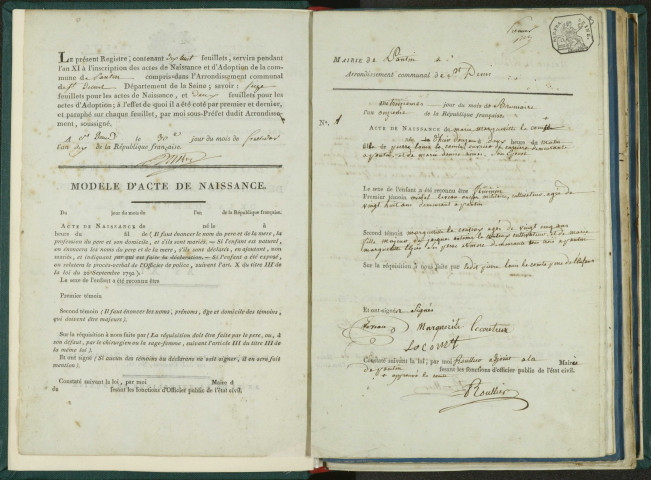 Le présent Registre, contenant dix huit feuillets, servira pendant
l'an XI à l'inscription des actes de Naissance et d'Adoption de la com-
mune de Pantin compris dans l'Arrondissement communal
de St Denis Département de la Seine; savoir: seize
feuillets pour les actes de Naissance, et deux feuillets pour les
actes d'Adoption; à l'effet de quoi il a été coté par premier et dernier,
et paraphé sur chaque feuillet, par moi Sous-Préfet dudit Arrondisse-
ment, soussigné.
A St Denis le 30 jour du mois de fructidor
l'an dix de la République française.
MODÈLE D'ACTE DE NAISSANCE.
Du jour du mois de l'an de la République française.
ACTE DE NAISSANCE de né le à
heure du fil de (Il faut énoncer le nom du père et de la mère, la
profession du père et son domicile, et s'ils sont mariés. — Si l'enfant est naturel,
on énoncera les noms du père et de la mère, s'ils sont déclarés, en ajoutant, non
mariés, et indiquant par qui est faite la déclaration. — Si l'enfant a été exposé,
on relatera le procès-verbal de l'Officier de police, suivant l'art. X du titre III de
la loi du 20 septembre 1792.)
Le sexe de l'enfant a été reconnu être
Premier témoin.
Second témoin (Il faut énoncer les noms, prénoms, âge et domicile des témoins,
qui doivent être majeurs).
Sur la réquisition à nous faite par (La réquisition doit être faite par le père, ou, à
son défaut, par le chirurgien ou la sage-femme, suivant l'article III du titre III de
la même loi).
Et ont signé (Si aucun des témoins ou déclarans ne sait signer, il en sera fait
mention).
Constaté suivant la loi, par moi Maire d
de faisant les fonctions d'Officier public de l'état civil.
Premier
MAIRIE de Pantin
Arrondissement communal de St Denis
Du troisieme jour du mois de Brumaire
l'an onzieme de la République française.
N.° 1
ACTE DE NAISSANCE de marie marguerite le comte
né hier onze heure de
fille de pierre le comte
a pantin et de marie denise son Epouse
Le sexe de l'enfant a été reconnu être feminin
Premier témoin michel cultivateur agé de
vingt huit ans demeurant a pantin
Second témoin marguerite le couteux agé de vingt cinq ans
fille majeure de jacque antoine le couteux cultivateur et de marie
marguerite demeurant tous trois a pantin
Sur la réquisition à nous faite par ledit pierre le comte pere de l'enfant
Et ont signé Signés
Marguerite Lecouteux
Lecomte
Constaté suivant la loi, par moi Roullier adjoint a la Mairie
de pantin faisant les fonctions d'officier public de l'état civil.
approuvé
Roullier